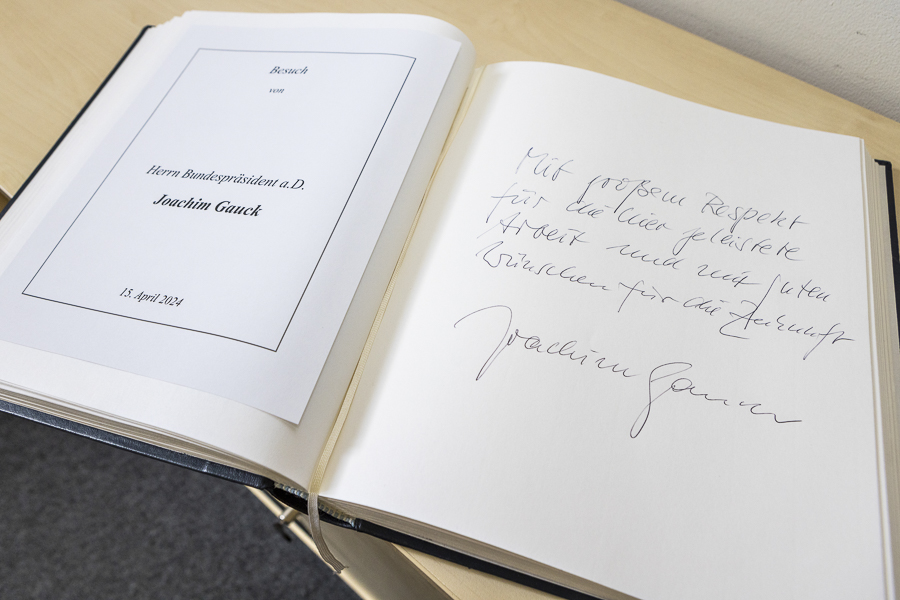 Besuch
von
Herrn Bundespräsident a.D.
Joachim Gauck
15. April 2024
Mit großem Respekt
für die hier geleistete
Arbeit und mit guten
Wünschen für die Zukunft
Joachim Gauck